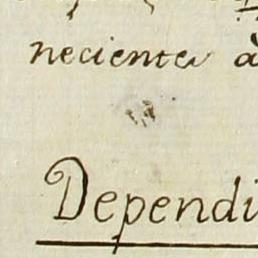 necientes a
Dependi